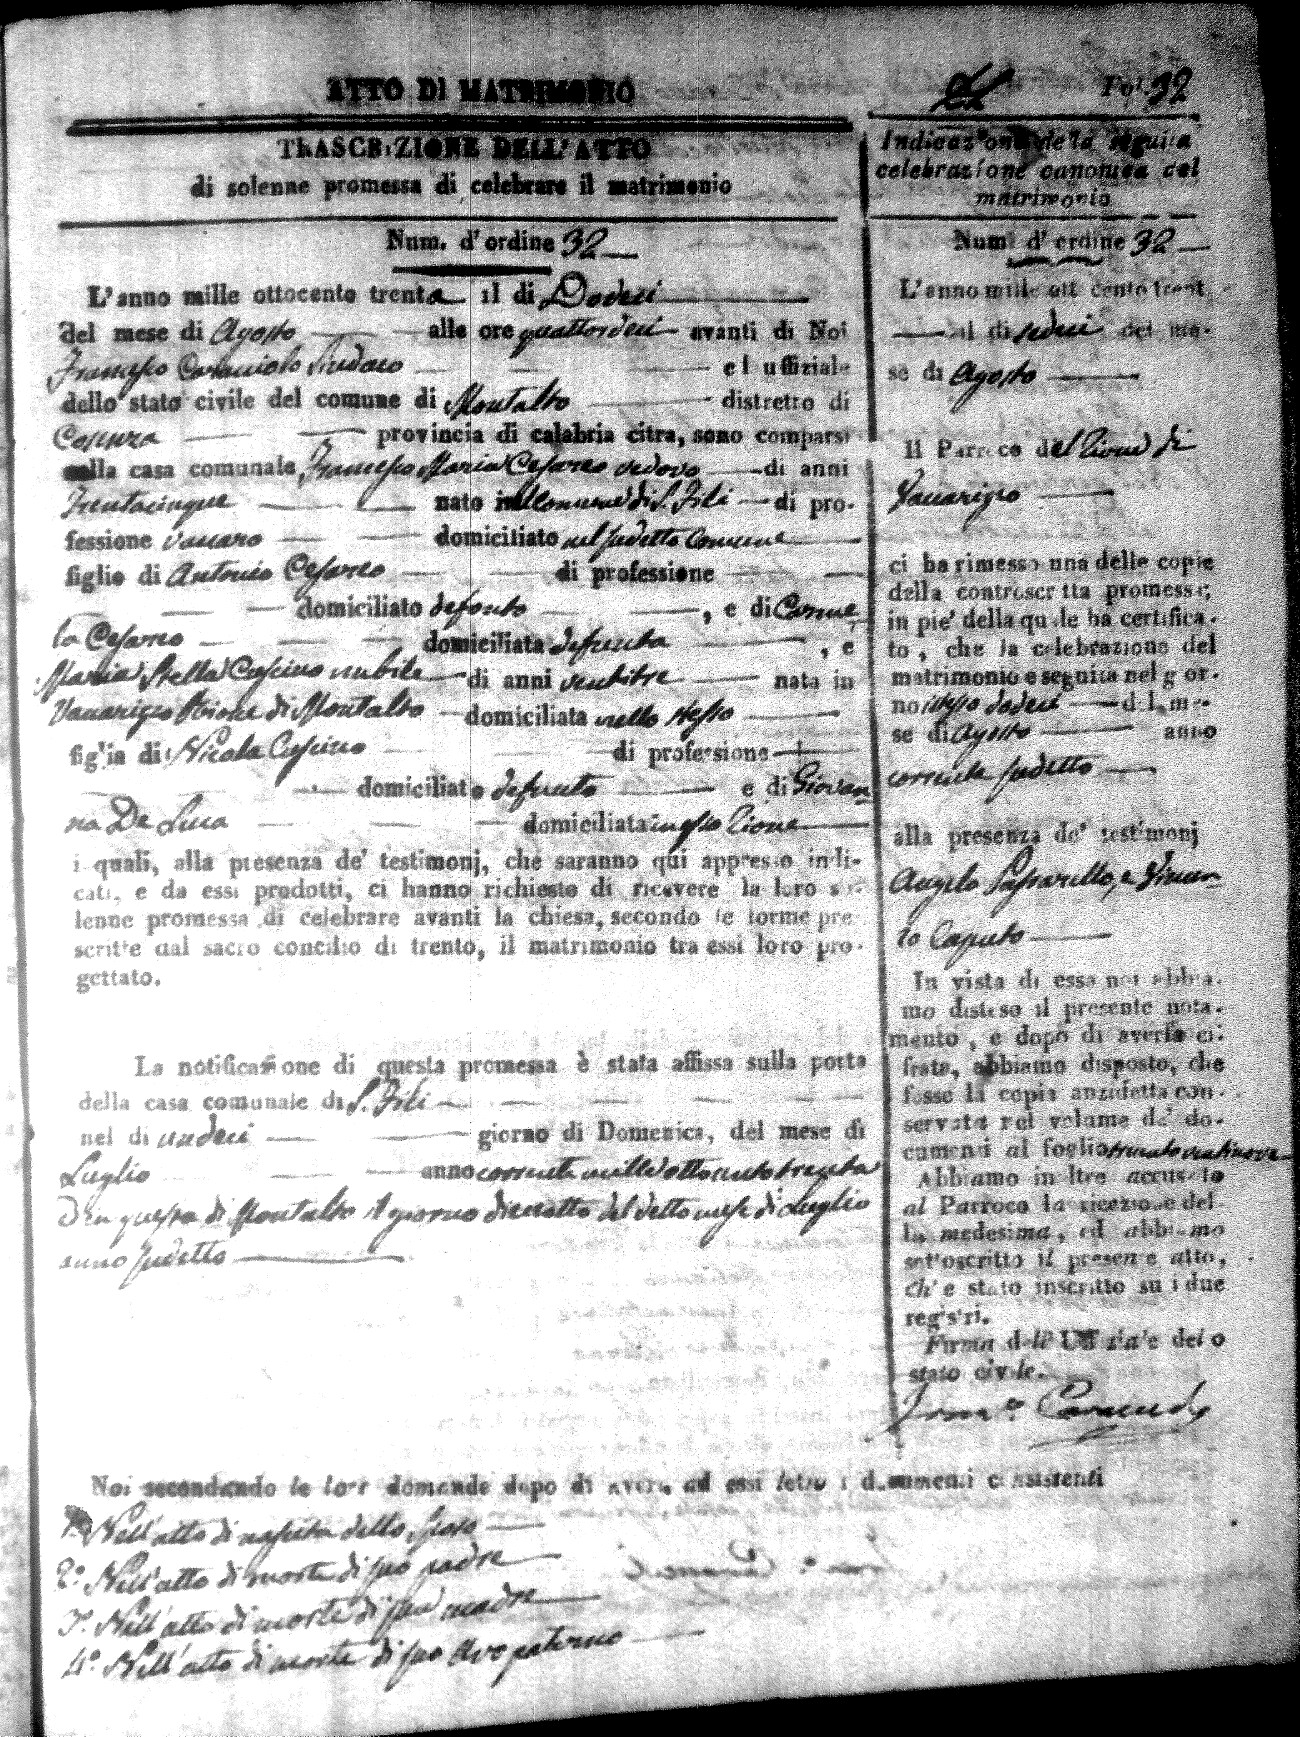 ATTO DI MATRIMONIO
Fol. 32
TRASCRIZIONE DELL'ATTO
di solenne promessa di celebrare il matrimonio
Num. d'ordine 32
L'anno mille ottocento trenta il di Dodeci
del mese di Agosto alle ore quattordeci avanti di Noi
Sindaco ed uffiziale
dello stato civile del comune di Montalto distretto di
Cosenza provincia di calabria citra, sono comparsi
nella casa comunale Francesco Maria Cesareo vedovo di anni
Trentacinque nato in Comune di S. Fili di pro-
fessione domiciliato nel sudetto Comune
figlio di Antonio Cesareo di professione
domiciliato defonto , e di Carme
la Cesareo domiciliata defunta , e
Maria Stella Cascino nubile di anni ventitre nata in
Vaccarizzo Rione di Montalto domiciliata nello stesso
figlia di Nicola Cascino di professione
domiciliato defunto e di Giovan
na De Luca domiciliata in esso Rione
i quali, alla presenza de' testimonj, che saranno qui appresso indi-
cati, e da essi prodotti, ci hanno richiesto di ricevere la loro so-
lenne promessa di celebrare avanti la chiesa, secondo le forme pre
scritte dal sacro concilio di trento, il matrimonio tra essi loro pro-
gettato.
La notificazione di questa promessa è stata affissa sulla porta
della casa comunale di S. Fili
nel di undeci giorno di Domenica, del mese di
Luglio anno corrente mille ottocento trenta
Ed in questa di Montalto il giorno dieciotto del detto mese di Luglio
anno sudetto
Indicazione della seguita
celebrazione canonica del
matrimonio
Num. d'ordine 32
L'anno mille ottocento trent
il di sedeci del me-
se di Agosto
Il Parroco del Rione di
Vaccarizzo
ci ha rimesso una delle copie
della controscritta promessa;
in pie' della quale ha certifica-
to, che la celebrazione del
matrimonio è seguita nel gior-
no dodeci del me-
se di Agosto anno
corrente sudetto
alla presenza de' testimonj
Angelo e Vincen
zo Caputo
In vista di essa noi abbia-
mo disteso il presente nota-
mento, e dopo di averla ci-
frata, abbiamo disposto, che
fosse la copia anzidetta con-
servata nel volume de' do-
cumenti al foglio trecento ventinove
Abbiamo inoltre accusato
al Parroco la ricezione del-
la medesima, ed abbiamo
sottoscritto il presente atto,
ch'è stato inscritto su i due
registri.
Firma dell'Uffiziale dello
stato civile.
Noi secondando le loro domande dopo di avere ad essi letto i documenti consistenti
1.º Nell'atto di nascita dello sposo
2.º Nell'atto di morte di suo padre
3.º Nell'atto di morte di sua madre
4.º Nell'atto di morte di suo Avo paterno